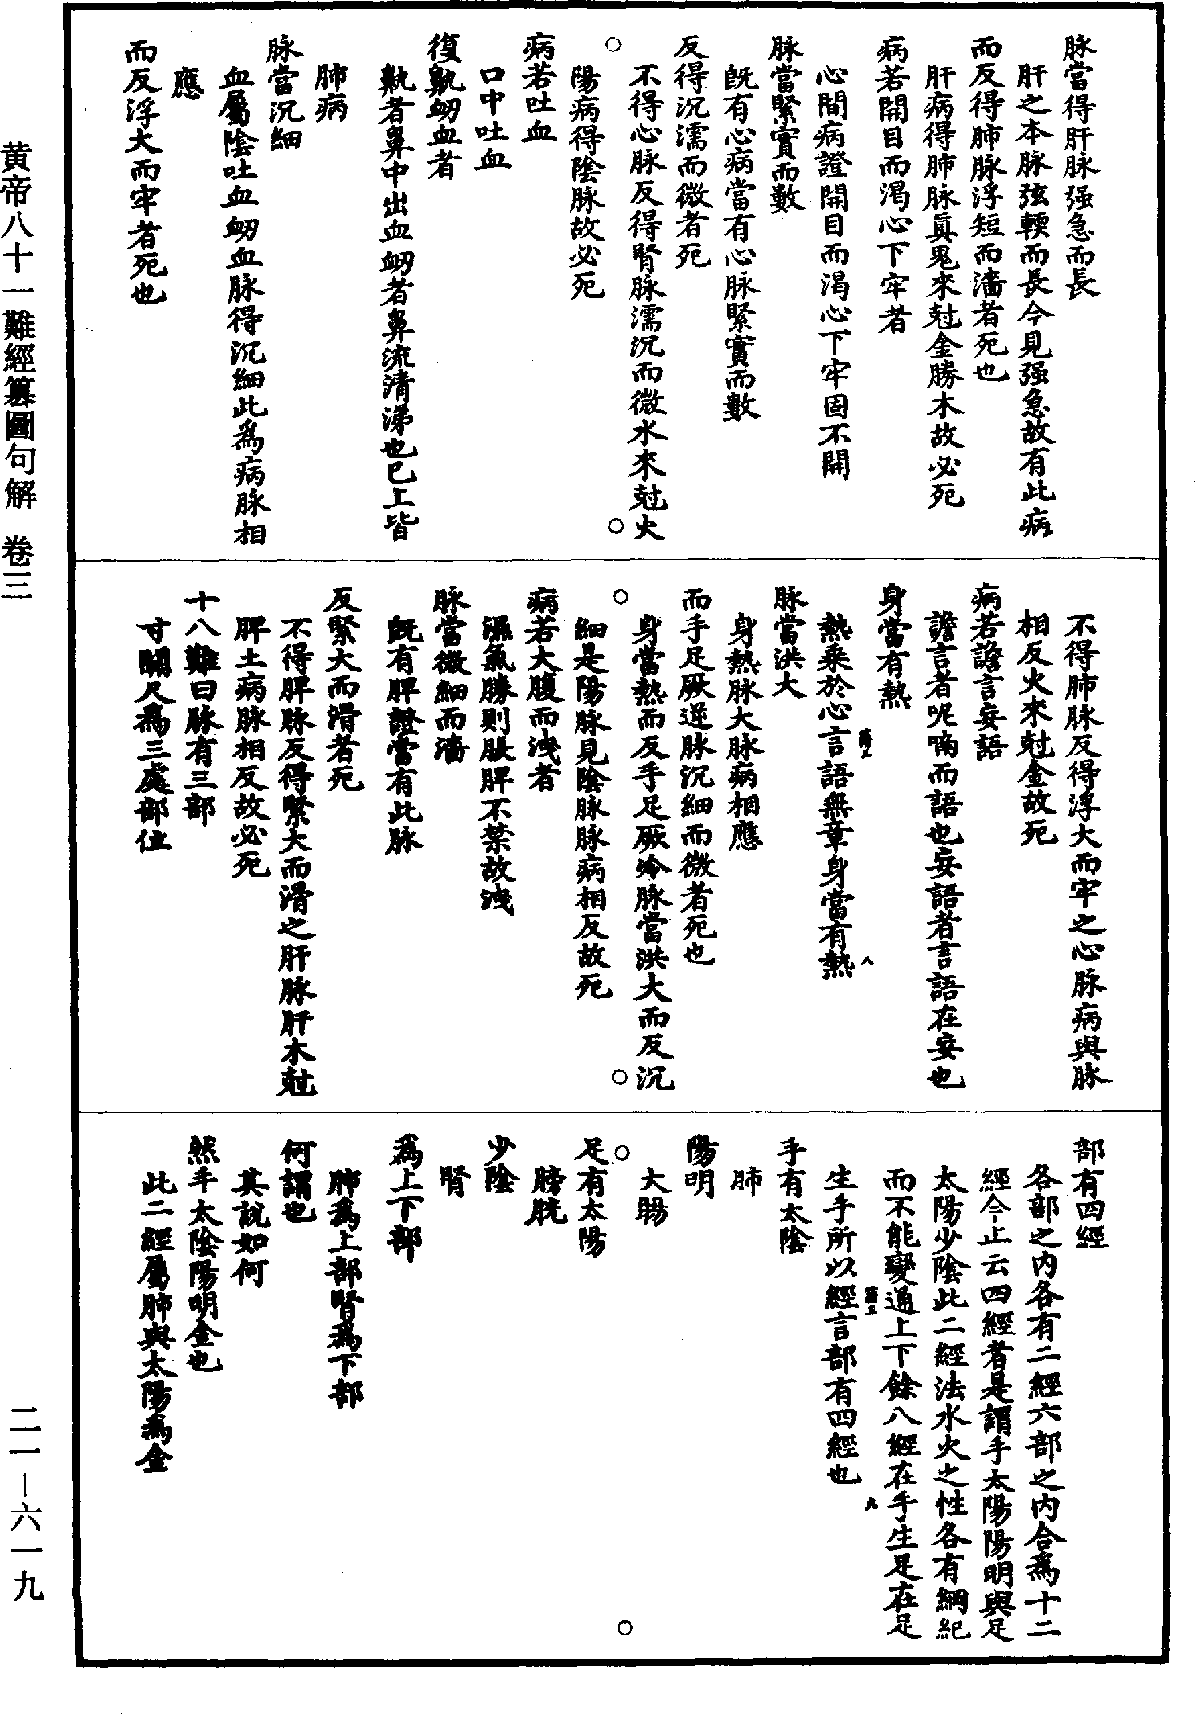 脉當得肝脉强急而長
肝之本脉弦輭而長今見强急故有此病
而反得肺脉浮短而濇者死也
肝病得肺脉眞鬼來尅金勝木故必死
病若開目而渴心下牢者
心間病證開目而渴心下牢固不開
脉當緊實而數
旣有心病當有心脉緊實而數
反得沉濡而微者死
不得心脉反得腎脉濡沉而微水來尅火
陽病得陰脉故必死
病若吐血
口中吐血
復鼽衂血者
鼽者鼻中出血衂者鼻流清涕也已上皆
肺病
脉當沉細
血屬陰吐血衂血脉得沉細此爲病脉相
應
而反浮大而牢者死也
不得肺脉反得浮大而牢之心脉病與脉
相反火來尅金故死
病若譫言妄語
譫言者呢喃而語也妄語者言語在妄也
身當有熱
熱乘於心言語無章身當有熱
脉當洪大
身熱脉大脉病相應
而手足厥逆脉沉細而微者死也
身當熱而反手足厥冷脉當洪大而反沉
細是陽脉見陰脉脉病相反故死
病若大腹而洩者
濕氣勝則脹脾不禁故洩
脉當微細而濇
旣有脾證當有此脉
反緊大而滑者死
不得脾脉反得緊大而滑之肝脉肝木尅
脾土病脉相反故必死
十八難曰脉有三部
寸關尺爲三處部位
部有四經
各部之内各有二經六部之内合爲十二
經今止云四經者是謂手太陽陽明與足
太陽少陰此二經法水火之性各有綱紀
而不能變通上下餘八經在手生足在足
生手所以經言部有四經也
手有太陰
肺
陽明
大腸
足有太陽
膀胱
少陰
腎
爲上下部
肺爲上部腎爲下部
何謂也
其說如何
然手太陰陽明金也
此二經屬肺與太陽爲金
黄帝八十一難經纂圖句解　卷三
二一—六一九